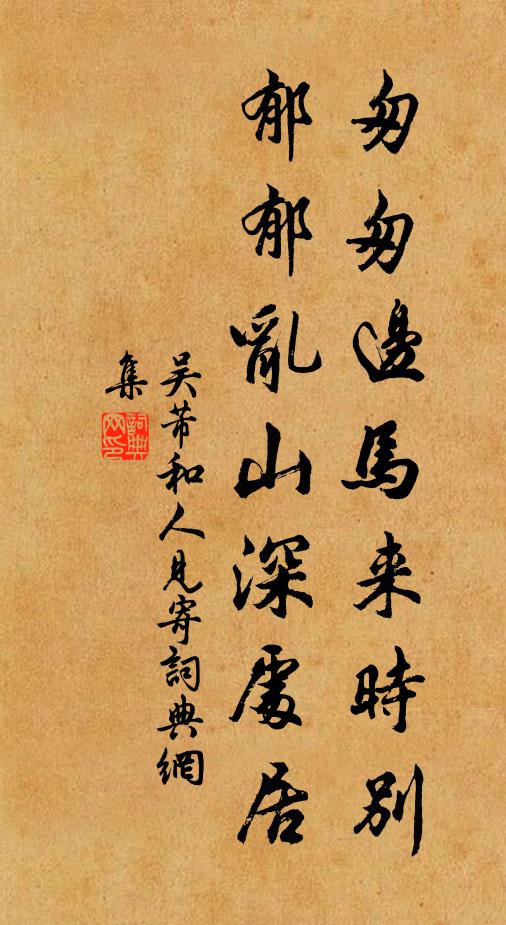 匆匆邊馬来時別
郁郁亂山深處居
吴芾和人見寄詞典網
集
詞典
网印